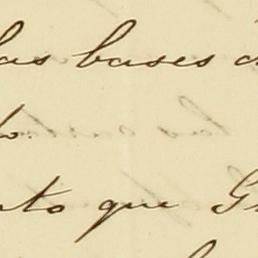 las bases d
o.
nto que G